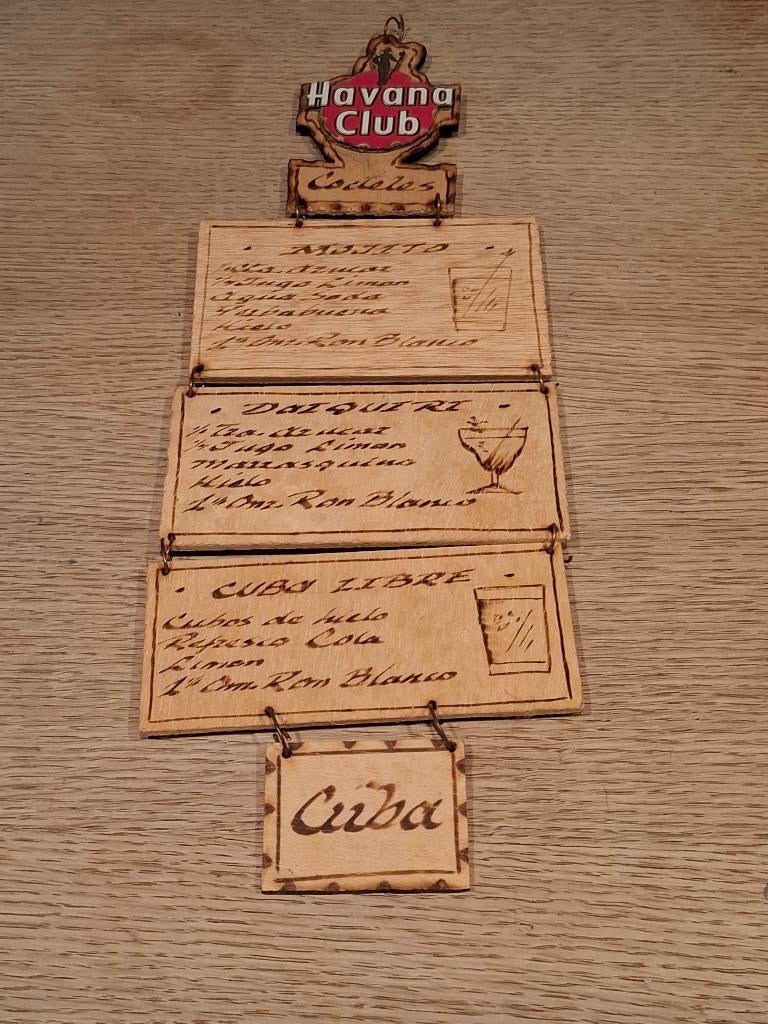 Havana
Club
Cocteles
MOJITO
½ Cta. Azucar
¼ Jugo Limon
Agua Soda
Yerbabuena
Hielo
1½ Onz. Ron Blanco
DAIQUIRI
½ Tza. Azucar
¼ Jugo Limon
Marrasquino
Hielo
1½ Onz. Ron Blanco
CUBA LIBRE
Cubos de hielo
Refresco Cola
Limon
1½ Onz. Ron Blanco
Cuba